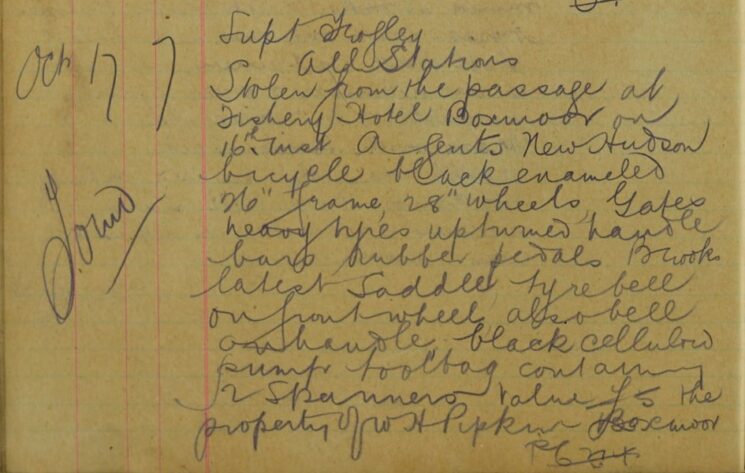 Oct 17 7 Supt Frogley
All Stations
Stolen from the passage at
Fishery Hotel Boxmoor on
16th inst A gents New Hudson
bicycle black enameled
26" frame, 28" wheels, Gates
heavy tyres upturned handle
bars rubber pedals Brooks
latest Saddle, tyre bell
on front wheel, also bell
on handle black celluloid
pump toolbag containing
2 Spanners value £5 the
property of W H Pipkin Boxmoor
PC
Found